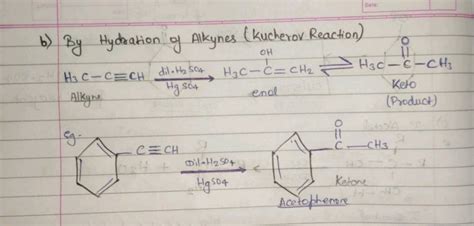 Date:
b) By Hydration of Alkynes (Kucherov Reaction)
OH
O
H₃C–C≡CH dil·H₂SO₄ HgSO₄ H₃C–C=CH₂ ⇌ H₃C–C–CH₃
Alkyne enol Keto
(Product)
eg.
C≡CH Dil·H₂SO₄ HgSO₄ O C–CH₃
Ketone
Acetophenone